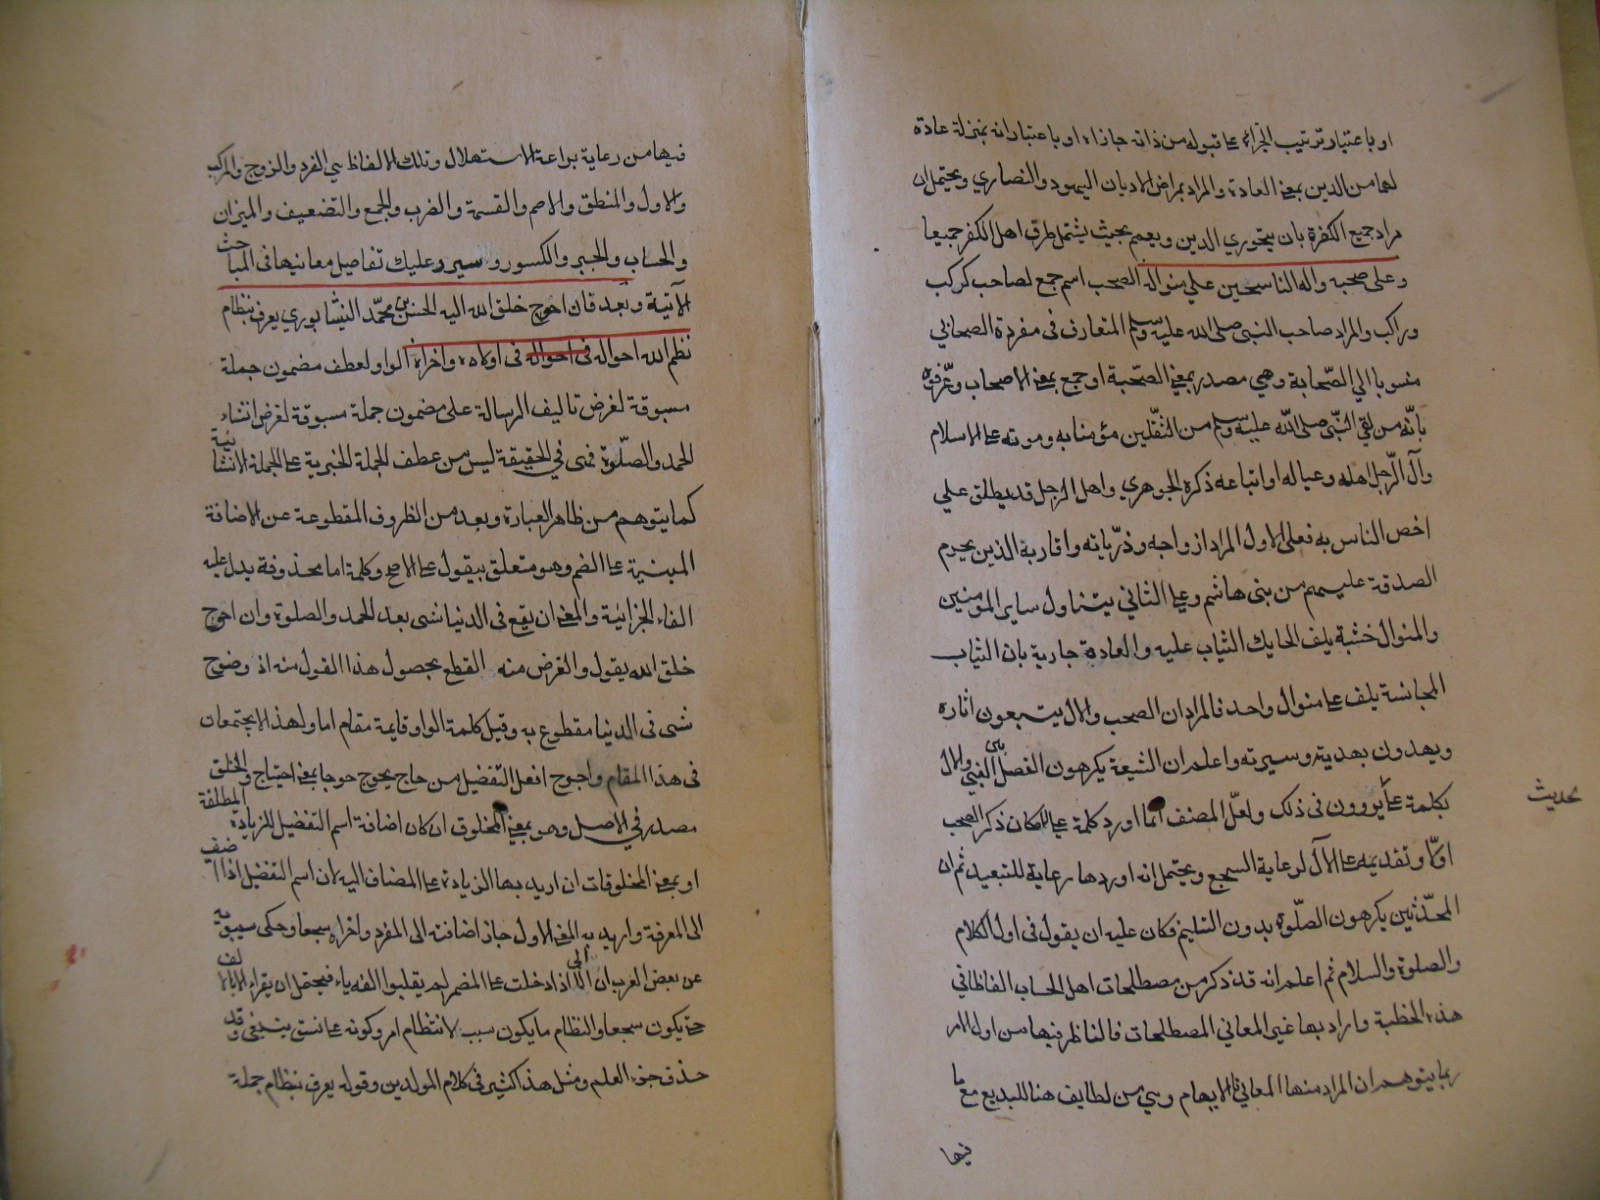 او باعتبار ترتيب الجزاء علے قبوله من ذاته جازاه او باعتبار انه بمنزلة عادة
لهما من الدين بمعنے العادة والمراد بمراض الاديان اليهود والنصاري ويحتمل ان
مراد جميع الكفرة بان يتجوز في الدين ويعمم بحيث يشتمل طرق اهل الكفر جميعا
وعلى صحبه وآله الناسجين علي منواله الصحب اسم جمع لصاحب كركب
وراكب والمراد صاحب النبى صلى الله عليه وسلم المتعارف فى مفرده الصحابي
منسوبا الي الصّحابة وهي مصدر بمعنے الصّحبة او جمع بمعنے الاصحاب وعّرفوه
بانّه من لقي النّبى صلى اللّه عليه وسلم من الثّقلين مؤمنا به وموته علے الاسلام
وآل الرّجل اهله وعياله او اتباعه ذكره الجوهري واهل الرجل قد يطلق علي
اخص الناس به فعلى الاول المراد ازواجه وذرّياته واقاربه الذين يحرم
الصدقة عليهم من بنى هاشم وعلے الثاني يتناول ساير المؤمنين
والمنوال خشبة يلف الحايك الثياب عليه والعادة جارية بان الثياب
المجانسة يلف علے منوال واحد فالمراد ان الصحب والال يتبعون اثاره
ويهدون بهديته وسيرته واعلم ان الشيعة يكرهون الفصل بين النبي والال
بكلمة علے يروون فى ذلك ولعلّ المصنف انما اورد كلمة علے لمكان ذكر الصحب
حديث
اولا وتقديمه علے الآل لرعاية السجع ويحتمل انه اوردها رعاية للتبعيد ثم ان
المحدّثين يكرهون الصّلوة بدون التسليم فكان عليه ان يقول فى اول الكلام
والصلوة والسلام ثم اعلم انه قد ذكر من مصطلحات اهل الحساب الفاظا في
هذه الخطبة واراد بها غير المعاني المصطلحات فالناظر فيها من اول الامر
ربما يتوهم ان المراد منها المعاني الايهام وهي من لطايف هنا للبديع مع ما
فيها
فيها من رعاية براعة الاستهلال وتلك الالفاظ هي الفرد والزوج والمركب
والاول والمنطق والاصم والقسمة والضرب والجمع والتضعيف والميزان
والحساب والجبر والكسور و سيرد عليك تفاصيل معانيها فى المباحث
الآتية وبعد فان احوج خلق الله اليه الحسن بن محمّد النيشابوري يعرف بنظام
نظم الله احواله فى احواله فى اولاه واخراه الواو لعطف مضمون جملة
مسبوقة لغرض تاليف الرسالة على مضمون جملة مسبوقة لغرض انشاء
الحمد والصلّوة فهى في الحقيقة ليس من عطف الجملة الخبرية علے الجملة الانشائية
كما يتوهم من ظاهر العبارة وبعد من الظروف المقطوعة عن الاضافة
المبنية علے الضم وهو متعلق بيقول علے الاصح وكلمة اما محذوفة يدل عليه
الفاء الجزائية والمعنے ان يقع فى الدنيا شى بعد الحمد والصلوة وان احوج
خلق الله يقول والغرض منه القطع بحصول هذا القول منه اذ وضوح
شى فى الدنيا مقطوع به وقيل كلمة الواو قايمة مقام اما ولهذا لا يجتمعان
فى هذا المقام واحوج افعل التّفضيل من حاج يحوج حوجا بمعنے احتياج والخلق
مصدر في الاصل وهو بمعنے المخلوق ان كان اضافة اسم التفضيل للزيادة المطلقة
او بمعنے المخلوقات ان اريد بها الزيادة علے المضاف اليه لان اسم التفضيل اذا اضيف
الى المعرفة واريد به المعنے الاول جاز اضافته الى المفرد واخراه سجعا وحكى سيبويه
عن بعض العرب ان الى اذا دخلت علے المضمر لم يقلبوا الفه ياء فيحتمل ان يقراء الاه بالالف
حتے يكون سجعا والنظام ما يكون سبب لانتظام امر وكونه علے نسق ينبغى وقد
حذف جزء العلم ومثل هذ اكثير فى كلام المولدين وقوله يعرف بنظام جملة